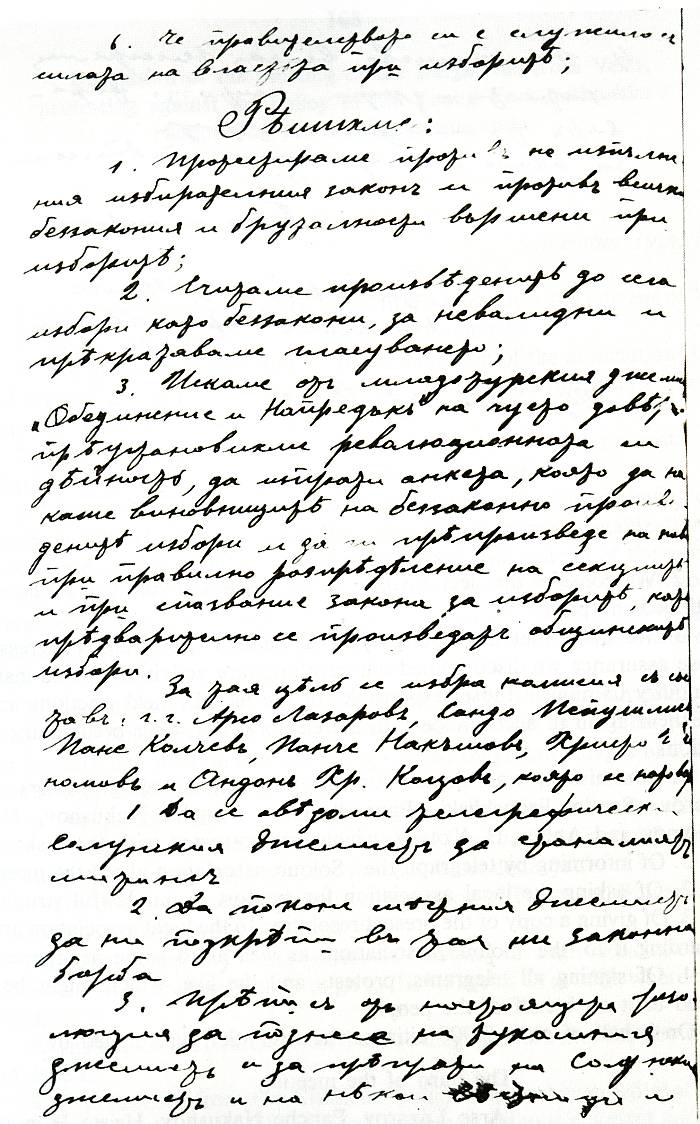 6. Че правителството си е служило с
силата на властьта при изборитѣ;
Рѣшихме:
1. Протестираме противъ не изпълне
ния избирателния законъ и противъ всички
беззакония и бруталности вършени при
изборитѣ;
2. Считаме произвѣденитѣ до сега
избори като беззакони, за невалидни и
прѣкратяваме гласуването;
3. Искаме отъ младотурския джеми
„Обединение и Напредъкъ" на чието довѣ
прѣустановихме революционната ни
дѣйность, да изпрати анкета, която да на
каже виновницитѣ на беззаконно произве
денитѣ избори и да ги прѣпроизведе на ново
при правилно разпрѣдѣление на секциитѣ
и при спазвание закона за изборитѣ, като
прѣдварително се произведатъ общинскитѣ
избори.
За тая цѣль се избра комисия съ съ
тавъ: г. г. Арсо Лазаровъ, Сандо
Пане Колчевъ, Панче Накъшовъ, Христо
номовъ и Андонъ Хр. Коцовъ, която се натовар
1. Да се авѣдоми телеграфически
Солунския джемиетъ за станалиятъ
митингъ
2. Да покани мѣстния джемиетъ
да ни подкрѣпи въ тая ни законна
борба
3. Прѣписъ отъ настоящата резо
люция да поднесе на тукашния
джемиетъ и да прѣпрати на Солунския
джемиетъ и на нѣкои и